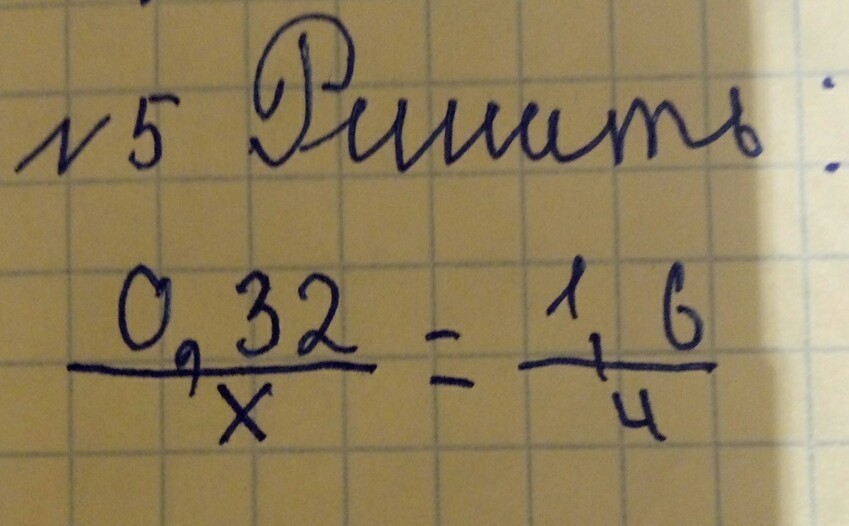 №5 Решить:
0,32 / x = 1,6 / 4